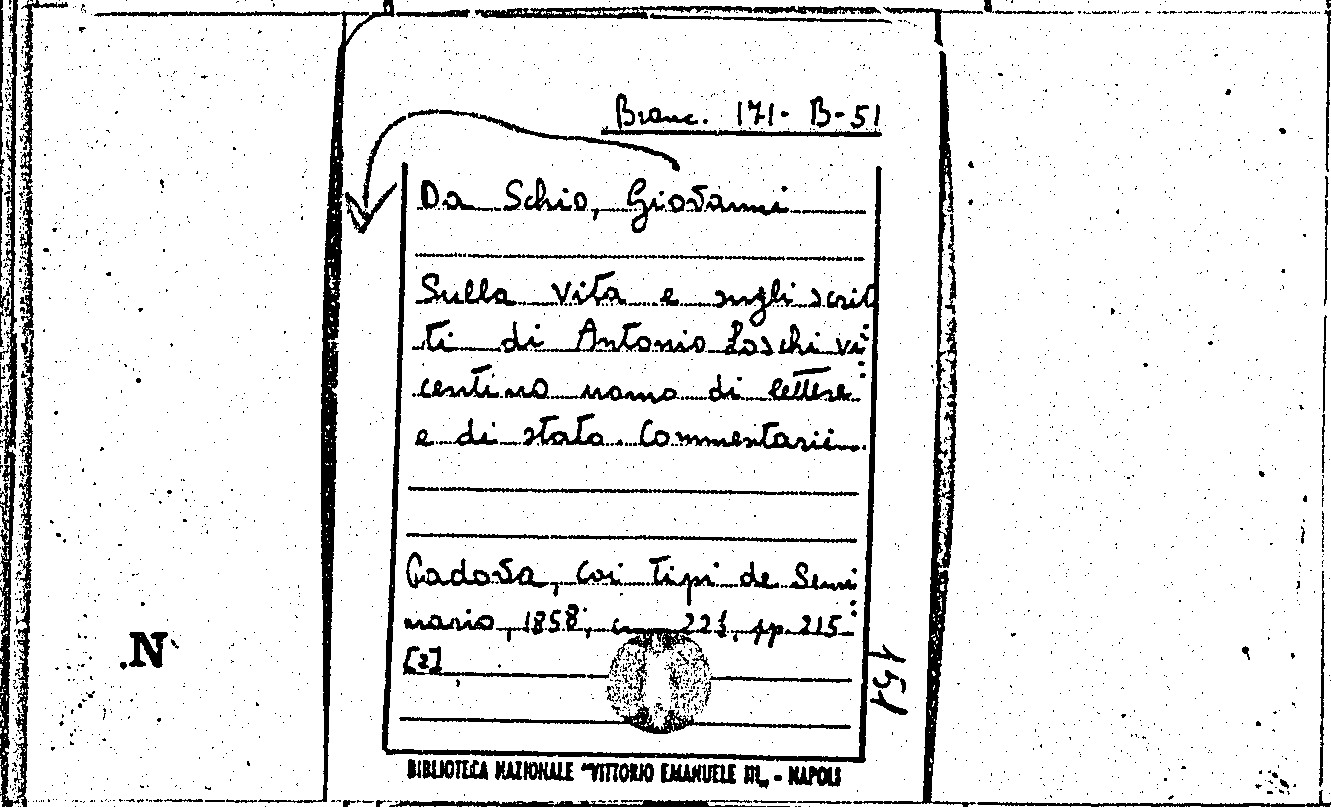 Branc. 171- B-51
Da Schio, Giovanni
Sulla vita e sugli scrit
ti di Antonio Loschi vi
centino uomo di lettere
e di stato. Commentarii
Padova, coi tipi de Semi
nario, 1858, cm 22½, pp. 215
[2]
151
N
BIBLIOTECA NAZIONALE "VITTORIO EMANUELE III„ - NAPOLI